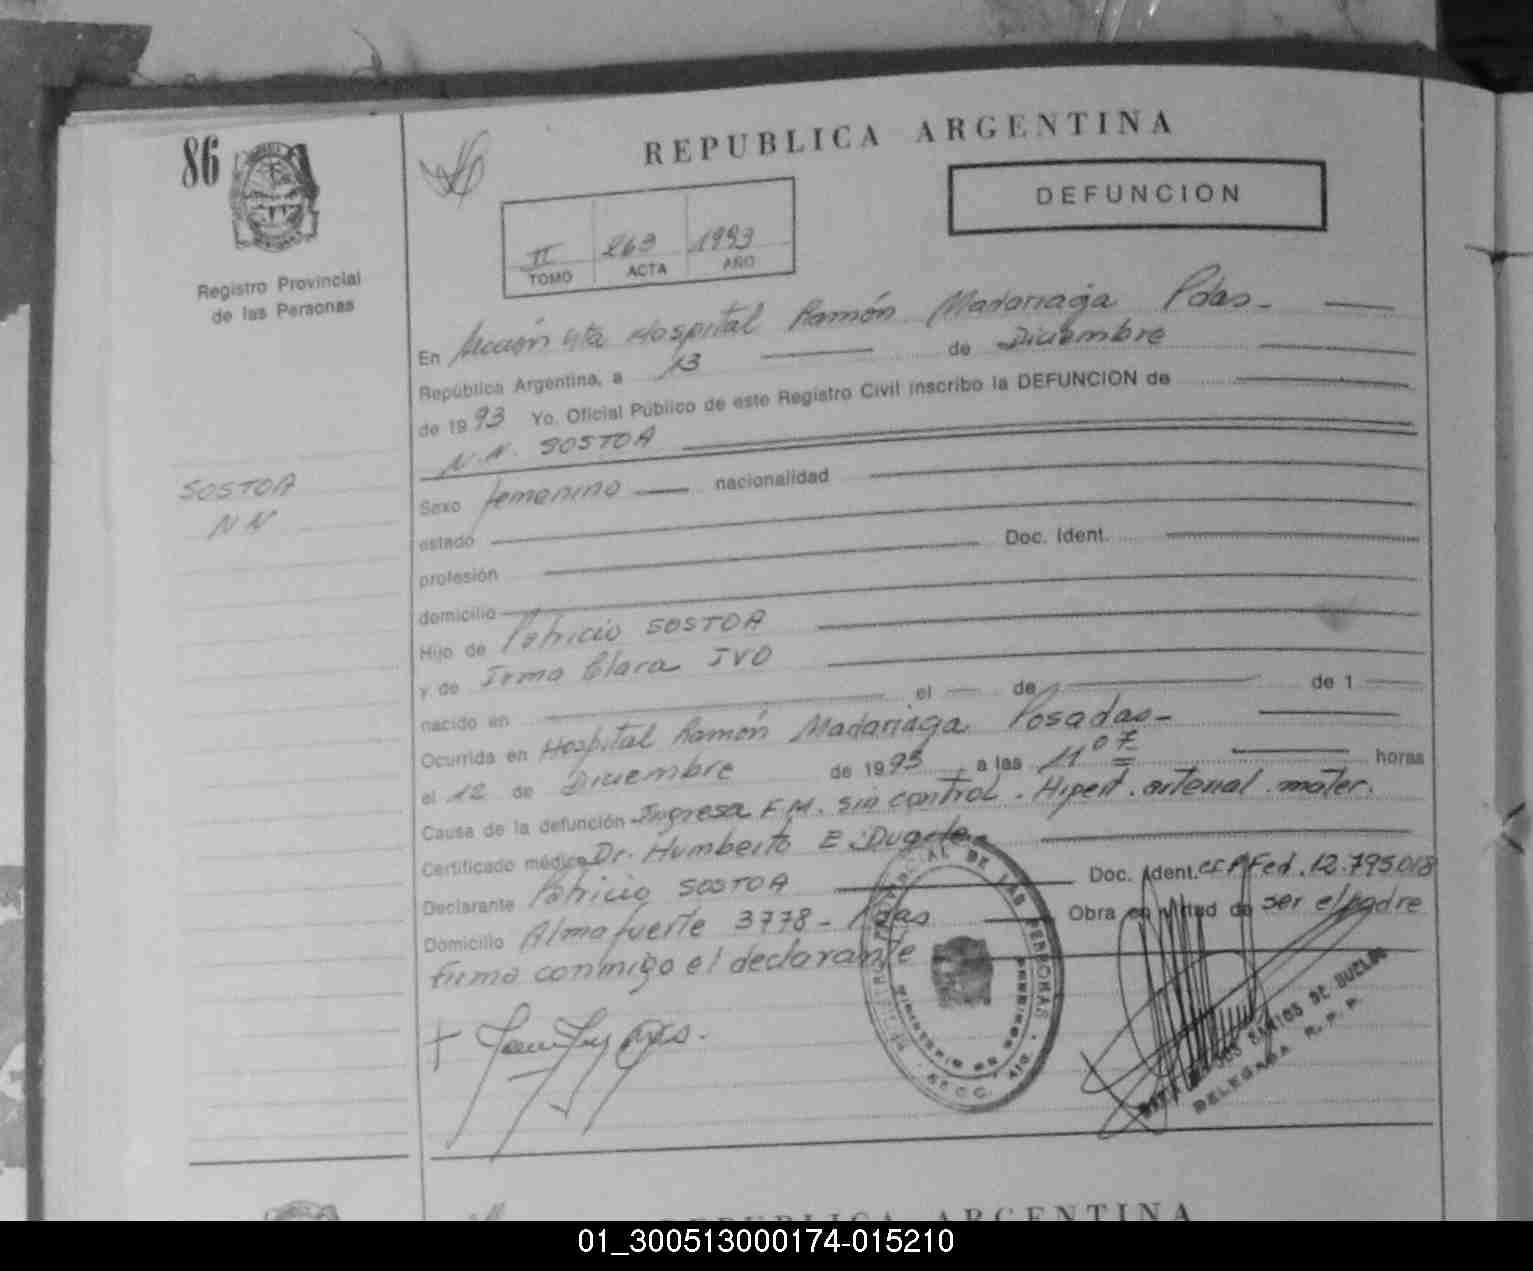 86
REPUBLICA ARGENTINA
DEFUNCION
II 263 1993
TOMO ACTA AÑO
Registro Provincial
de las Personas
En Sección 4ta Hospital Ramón Madariaga Pdas.
República Argentina, a 13 de Diciembre
de 1993 Yo, Oficial Público de este Registro Civil inscribo la DEFUNCION de
N.N. SOSTOA
SOSTOA
NN
Sexo femenino nacionalidad
estado
profesión Doc. Ident.
domicilio
Hijo de Patricio SOSTOA
y de Irma Clara IVO
nacido en el de de 1
Ocurrida en Hospital Ramón Madariaga Posadas-
el 12 de Diciembre de 1993 a las 11 07 horas
Causa de la defunción Ingresa F.M. sin control. Hipert. arterial. mater.
Certificado médico Dr. Humberto E.
Declarante Patricio SOSTOA Doc. Ident. Fed. 12.795.018
Domicilio Almafuerte 3778- Pdas Obra en virtud de ser el padre
firma conmigo el declarante
REGISTRO PROVINCIAL DE LAS PERSONAS
DELEGADA R. P. P.
REPUBLICA ARGENTINA
01_300513000174-015210